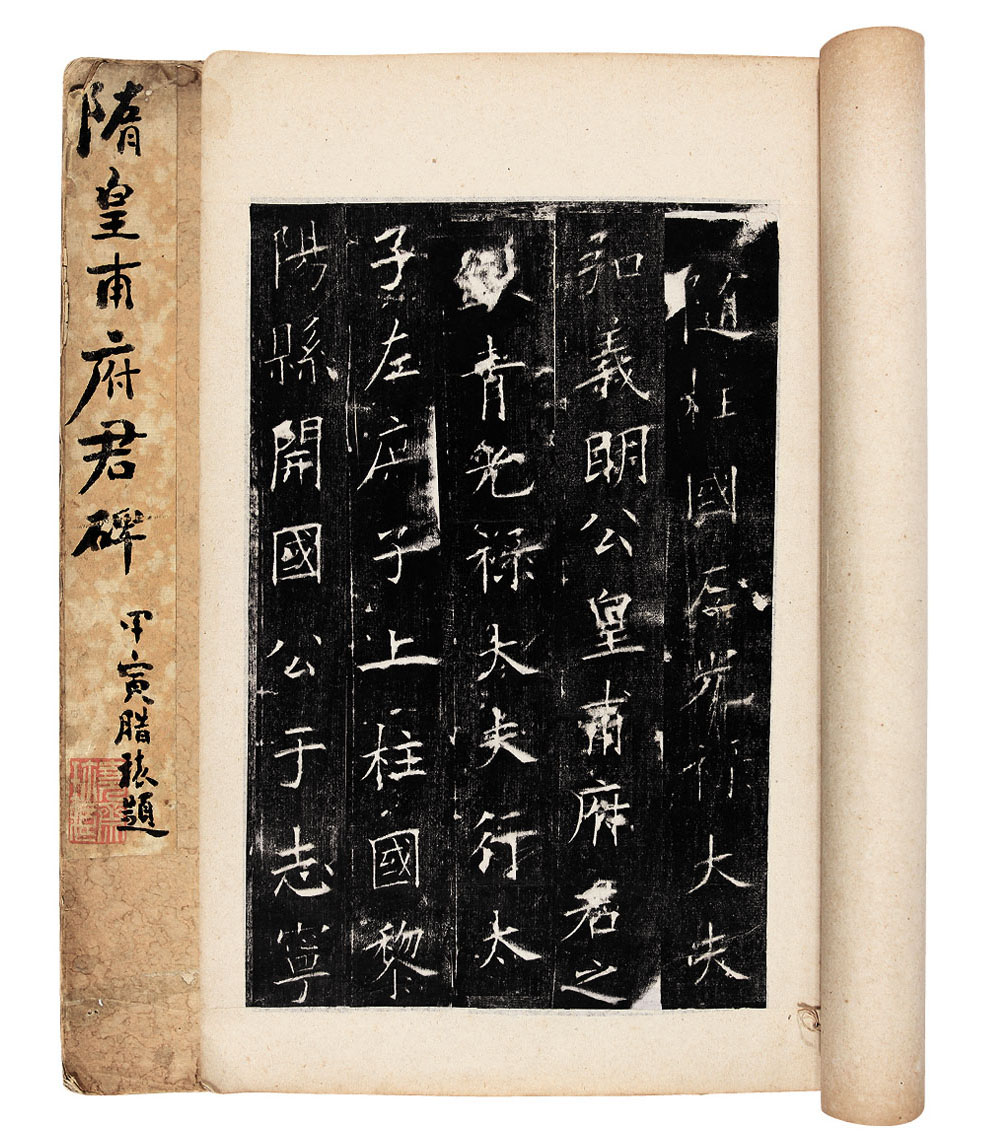 隋皇甫府君碑
甲寅腊 題
隨柱國左光祿大夫
弘義明公皇甫府君之
青光禄大夫行太
子左庶子上柱國黎
陽縣開國公于志寧